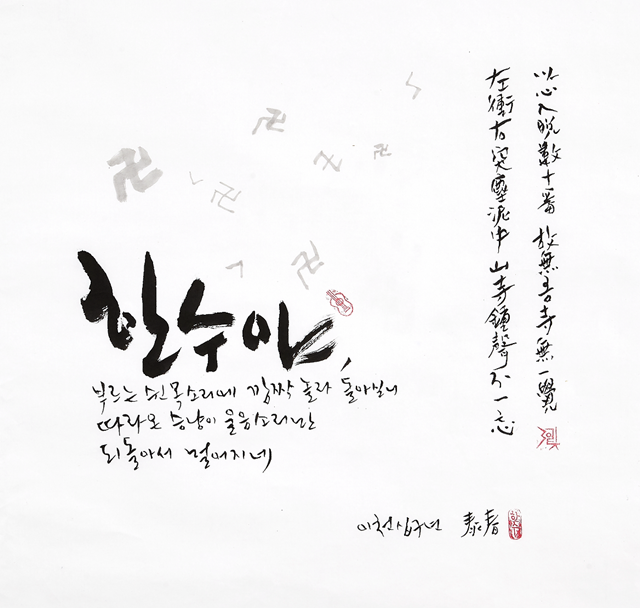 以心入脫數十番 故無寺無一覺
左衝右突塵泥中 山寺鐘聲不一忘
한수야,
부르는 쉰 목소리에 깜짝 놀라 돌아보니
따라온 승냥이 울음소리만
되돌아서 멀어지네
이천십구년 泰春